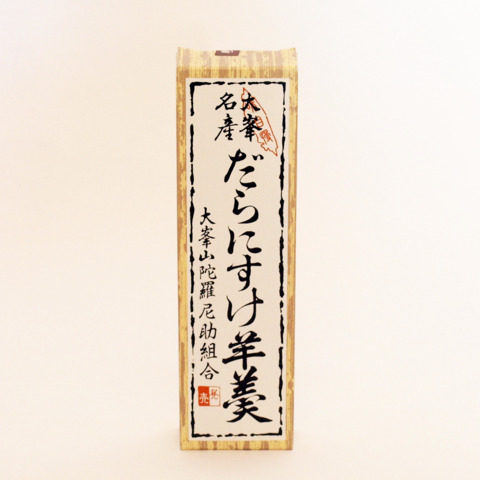 大峯
名産
だらにすけ羊羹
大峯山陀羅尼助組合